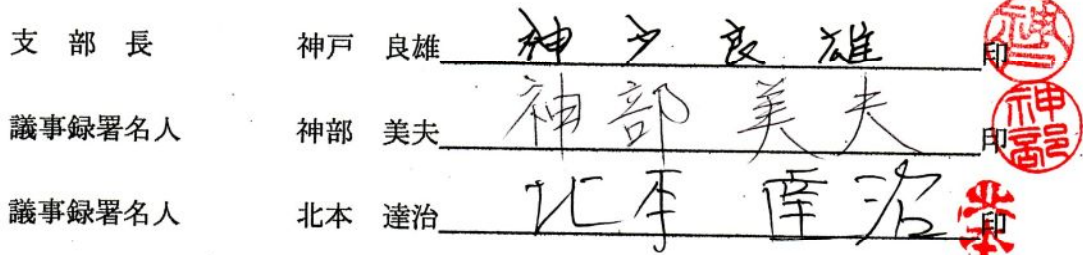 支部長 神戸 良雄 神戸良雄 印
議事録署名人 神部 美夫 神部美夫 印 神部
議事録署名人 北本 達治 北本達治 印 北本